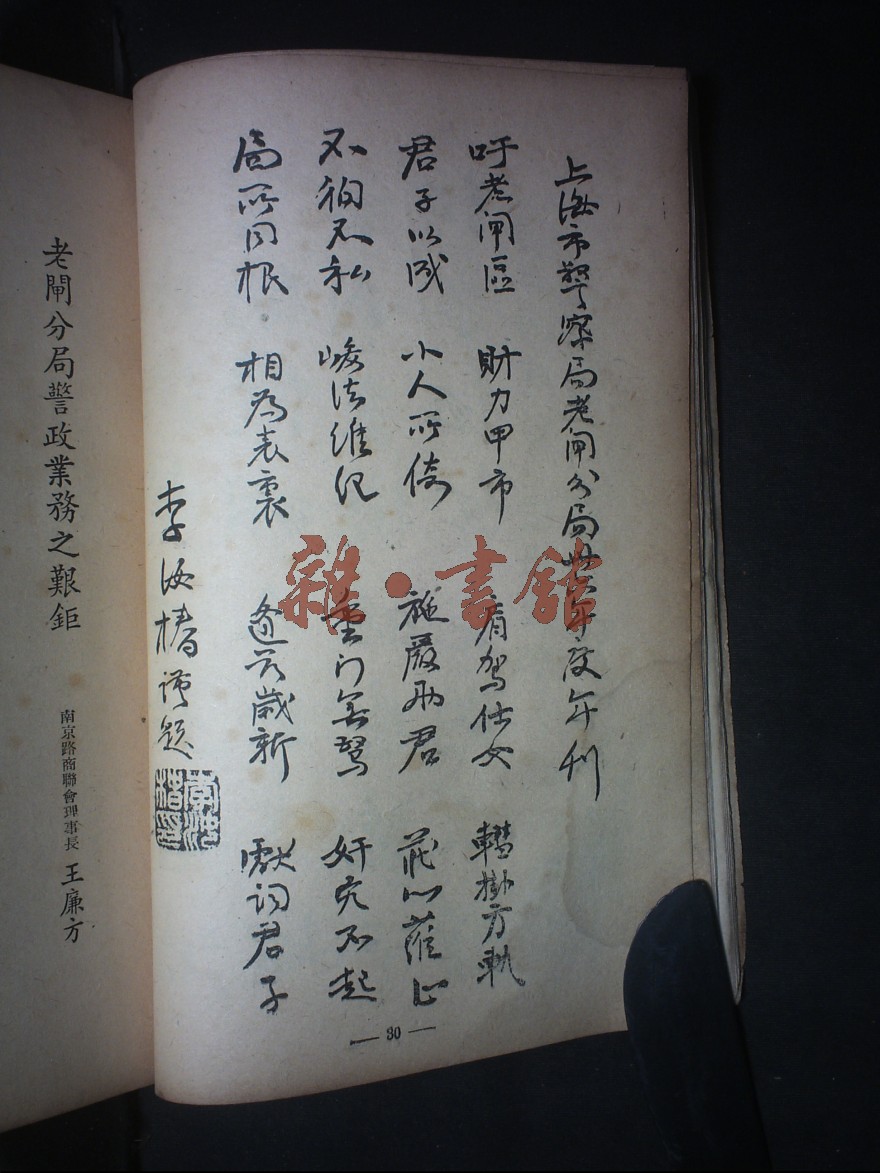 上海市警察局老閘分局卅六年度年刊
吁老閘區 財力甲市 肩駕仕女 轊掛方軌
君子以成 小人所倚 施嚴 君 茲心 止
不徇不私 峻法維紀 臺門無驚 奸宄不起
局所同根 相為表裏 逢茲歲新 獻詞君子
李 椿謹題
30
老閘分局警政業務之艱鉅
南京路商聯會理事長 王廉方
雜·書館